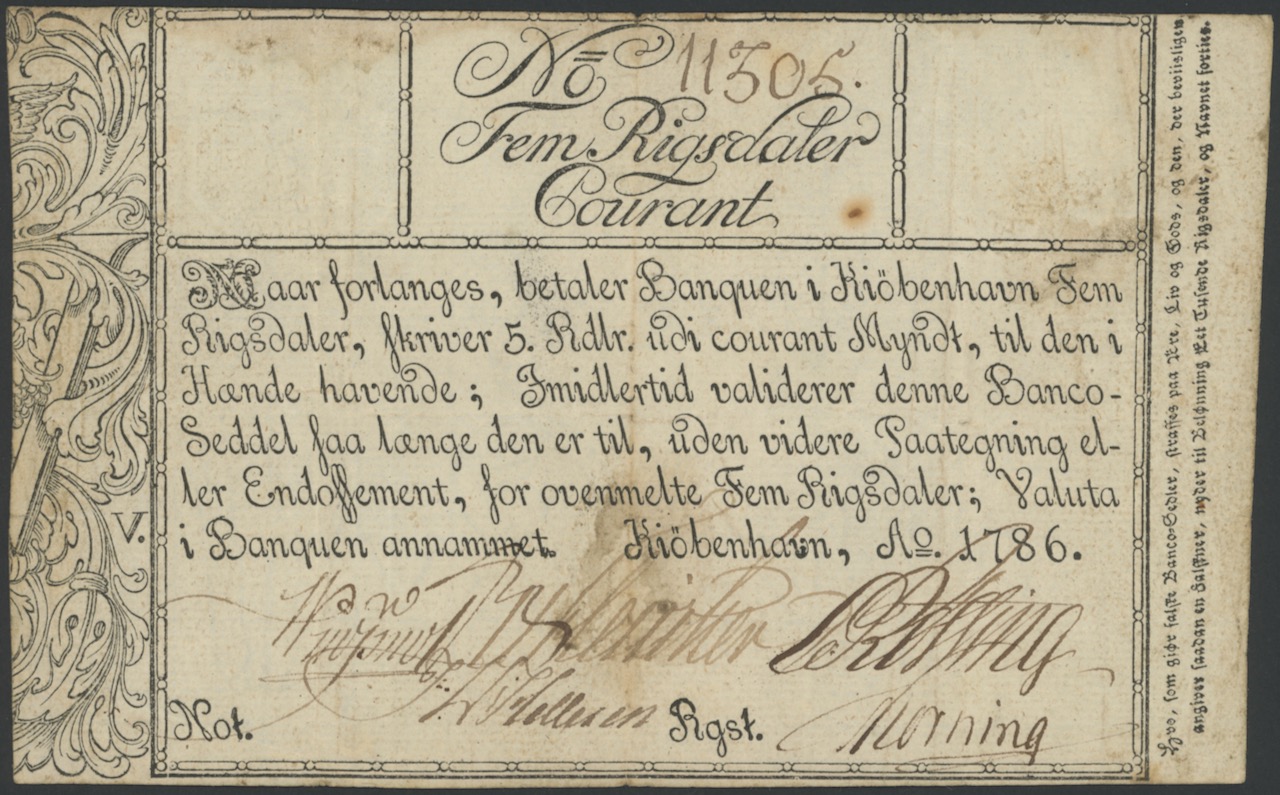 No 11305.
Fem Rigsdaler
Courant
Naar forlanges, betaler Banquen i Kiöbenhavn Fem
Rigsdaler, skriver 5. Rdlr. udi courant Myndt, til den i
Hænde havende; Imidlertid validerer denne Banco-
Seddel saa længe den er til, uden videre Paategning el-
ler Endossement, for ovenmelte Fem Rigsdaler; Valuta
i Banquen annammet. Kiöbenhavn, Ao. 1786.
V.
Not. Rgst. Horning
Hvo, som giør falske Banco-Sedler, straffes paa Ære, Liv og Gods, og den, der beviisligen
angiver saadan en Falskner, nyder til Belønning Eet Tusende Rigsdaler, og Navnet forties.